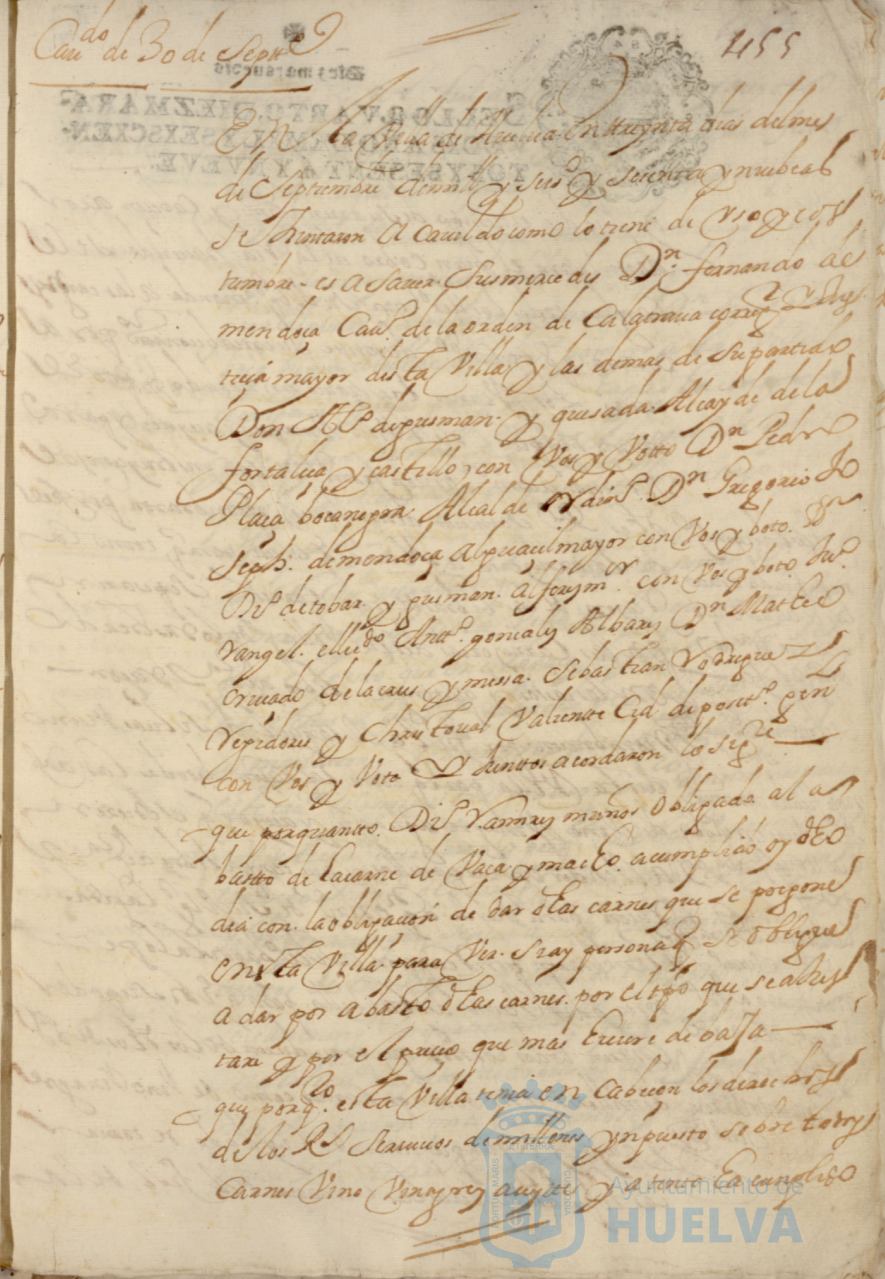 Cauᵈᵒ de 30 de Septtᵉ
455
Diez marauedis
SELLO QVARTO, DIEZ MARA-
SEISCIEN-
TOS Y SESENTA Y NVEVE.
En la Villa de Huelua en treynta dias del mes
de Septiembre de mill y seisº y sesenta y nuebe as
se Juntaron a Cauildo como lo tiene de Vso y cos
tumbre es a sauer Sus mercedes Dⁿ fernando de
mendoça Cauº de la orden de Calatraua corregʳ y Jus
ticia mayor desta Villa y las demas de su partido
Don Alº de gusman y quesada Alcayde de la
fortaleça y castillo con Vos y Votto Dⁿ Pedro
Plaça bocanegra Alcalde ordinº Dⁿ Gregorio Jo
seph de mendoça alguacil mayor con Vos y boto Dⁿ
Diº de tobar y gusman alferz mʳ con Vos y boto Juº
rangel el licdº Anttº gonçales Albarez Dⁿ Matheo
criuado de la crus y messa Sebastian Rodrigues
regidores y Christoual Valiente Cid depossitº gen
con Vos y Voto Y Junttos acordaron lo sigᵗᵉ
que porquantto Diº Ramires muños obligado al a
bastto de la carne de Vaca y macho a cumplido oy dho
dia con la obligacion de dar dhas carnes que se pregone
en esta Villa para Ver si ay persona q se obligue
a dar por abasto dhas carnes por el tpo que se alus
tare y por el precio que mas hiciere de baja
que porqᵗᵒ esta Villa tenia en Cabeçon los derechos
de los Rˢ Seruicios de millones ynpuesto sobre
Carnes Vino Vinagre y aceyte y a tenido cumplido
Ayuntamiento de
HUELVA